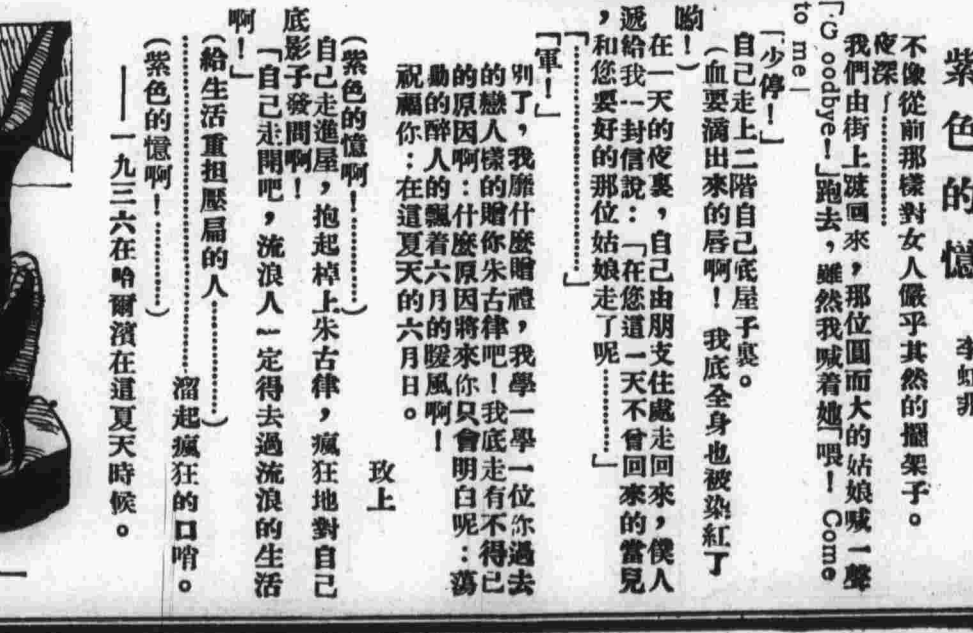 紫色的憶
李
不像從前那樣對女人儼乎其然的擺架子。
夜深………………
我們由街上踱回來，那位圓而大的姑娘喊一聲
「G oodbye！」跑去，雖然我喊着她「喂！ Come
to me」
「少停！」
自己走上二階自己底屋子裏。
（血要滴出來的唇啊！ 我底全身也被染紅了
喲！）
在一天的夜裏，自己由朋支住處走回來，僕人
遞給我一封信說：「在您這一天不曾回來的當兒
，和您要好的那位姑娘走了呢………」
「………………………」
「軍！」
別了，我靡什麼贈禮，我學一學一位你過去
的戀人樣的贈你朱古律吧！我底走有不得已
的原因啊：什麼原因將來你只會明白呢：蕩
動的醉人的飄着六月的暖風啊！
祝福你：在這夏天的六月日。
玫上
（紫色的憶啊！………）
自己走進屋，抱起棹上朱古律，瘋狂地對自己
底影子發問啊！
「自己走開吧，流浪人一定得去過流浪的生活
啊！」
（給生活重担壓扁的人…………）
………………………………溜起瘋狂的口哨。
（紫色的憶啊！………）
——一九三六在哈爾濱在這夏天時候。